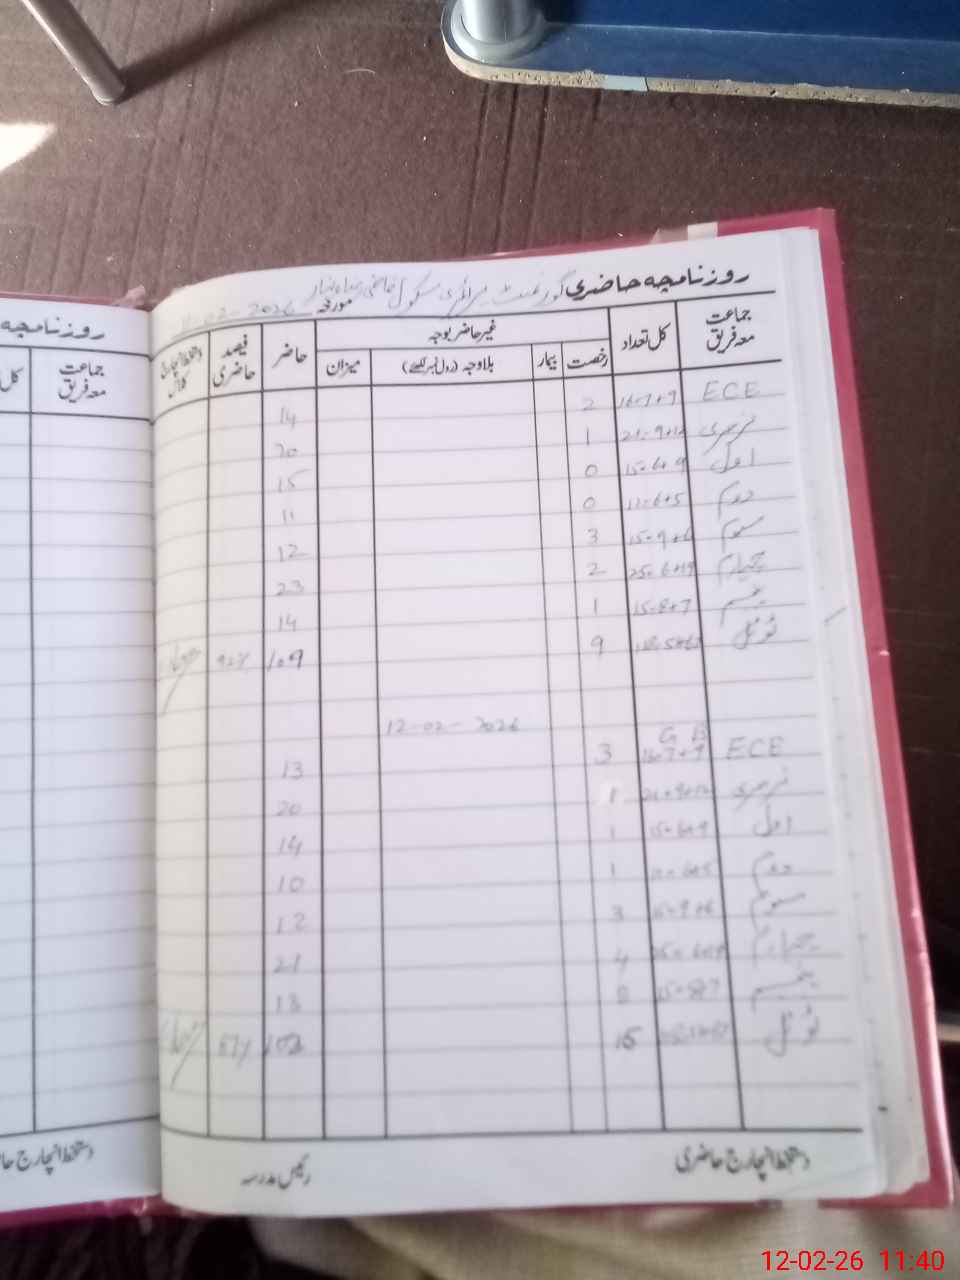 روزنامچہ حاضری گورنمنٹ پرائمری سکول
مورخہ 11-02-2026
جماعت معہ فریق کل تعداد غیر حاضر بوجہ حاضر فیصد حاضری دستخط انچارج کلاس
رخصت بیمار بلاوجہ (رول نمبر لکھیے) میزان
ECE 16=7+9 2 14
نرسری 21=9+12 1 20
اول 15=6+9 0 15
دوم 11=6+5 0 11
سوم 15=9+6 3 12
چہارم 25=6+19 2 23
پنجم 15=8+7 1 14
ٹوٹل 9 109 92%
12-02-2026
G B
ECE 16=7+9 3 13
نرسری 21=9+12 1 20
اول 15=6+9 1 14
دوم 11=6+5 1 10
سوم 15=9+6 3 12
چہارم 25=6+19 4 21
پنجم 15=8+7 13
ٹوٹل 15 87%
دستخط انچارج حاضری رئیس مدرسہ
روزنامچہ
جماعت معہ فریق کل
دستخط انچارج
12-02-26 11:40